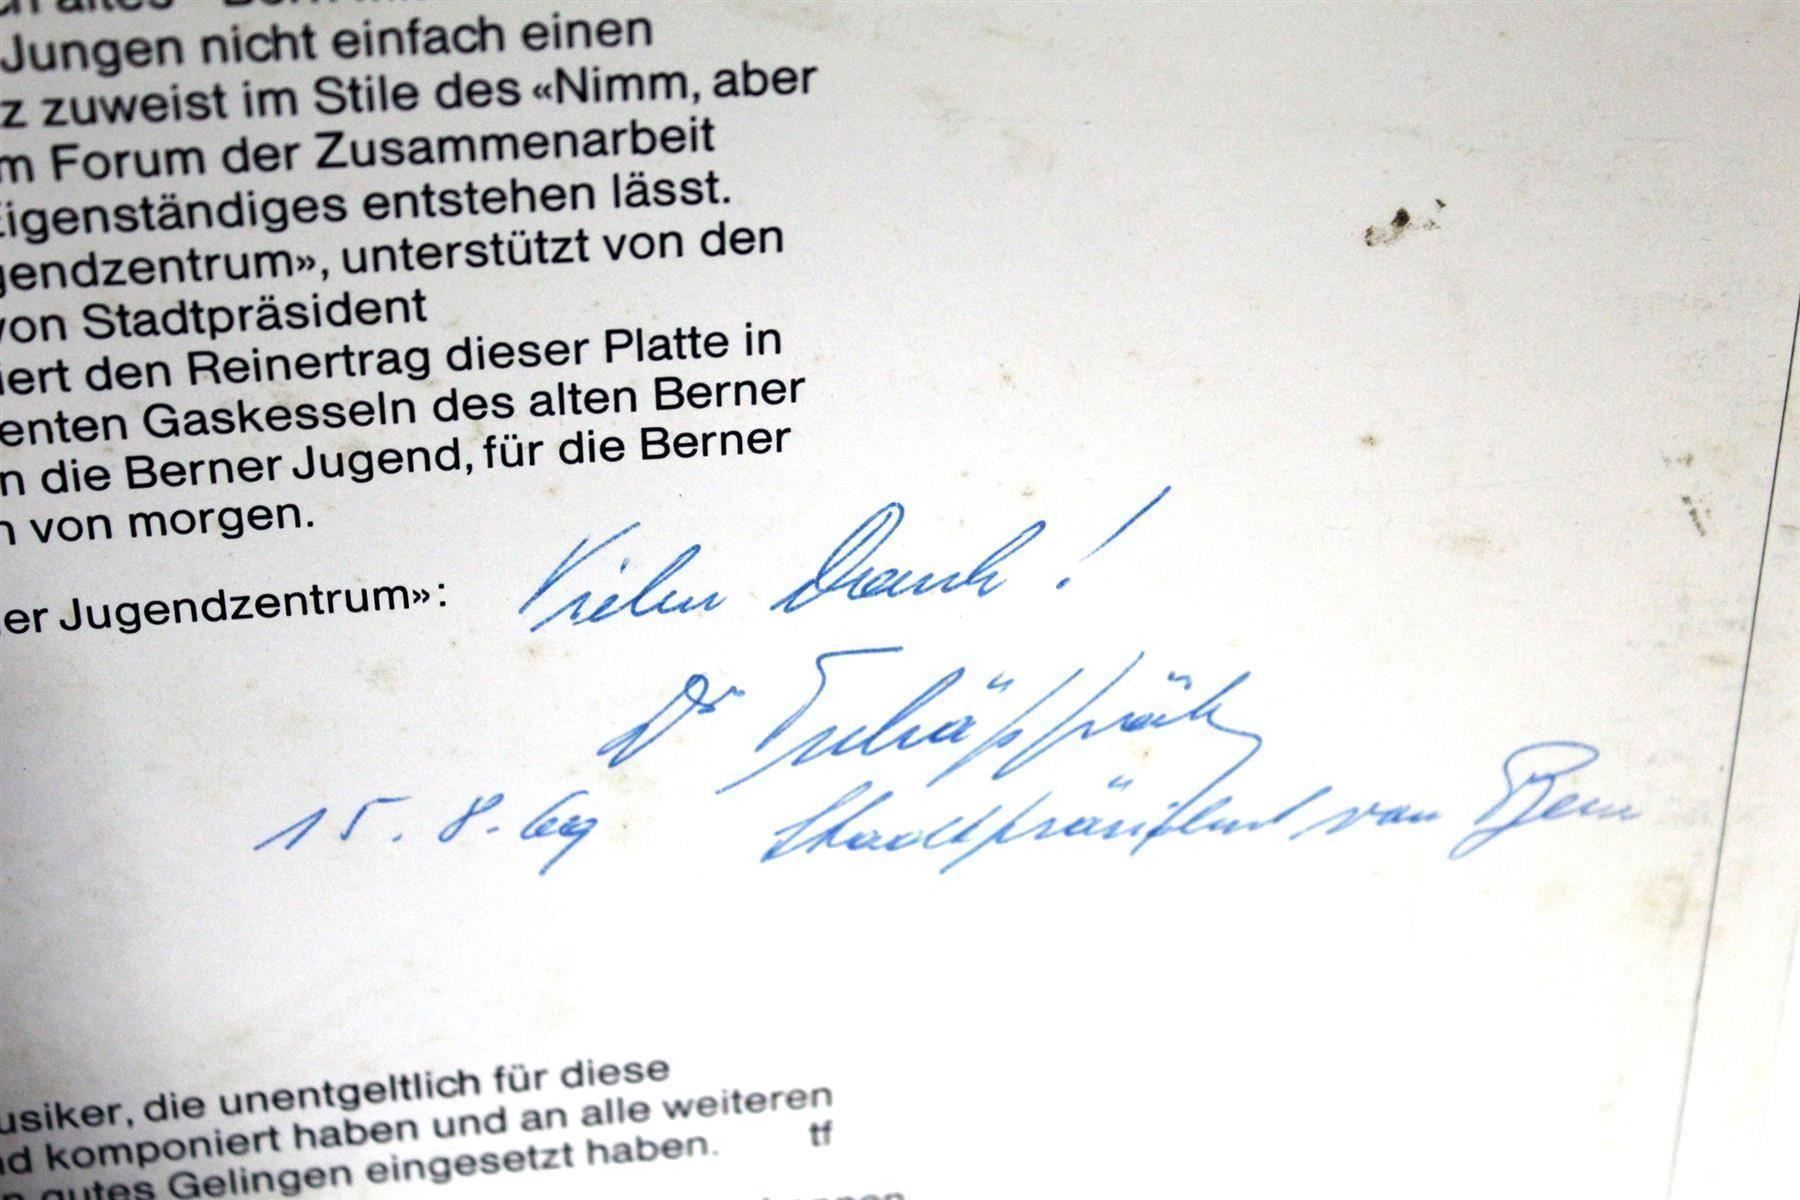 Jungen nicht einfach einen
z zuweist im Stile des «Nimm, aber
m Forum der Zusammenarbeit
Eigenständiges entstehen lässt.
gendzentrum», unterstützt von den
von Stadtpräsident
iert den Reinertrag dieser Platte in
enten Gaskesseln des alten Berner
n die Berner Jugend, für die Berner
n von morgen.
er Jugendzentrum»: Vielen Dank!
Dr
15.8.69 Stadtpräsident von Bern
usiker, die unentgeltlich für diese
nd komponiert haben und an alle weiteren
n gutes Gelingen eingesetzt haben. tf